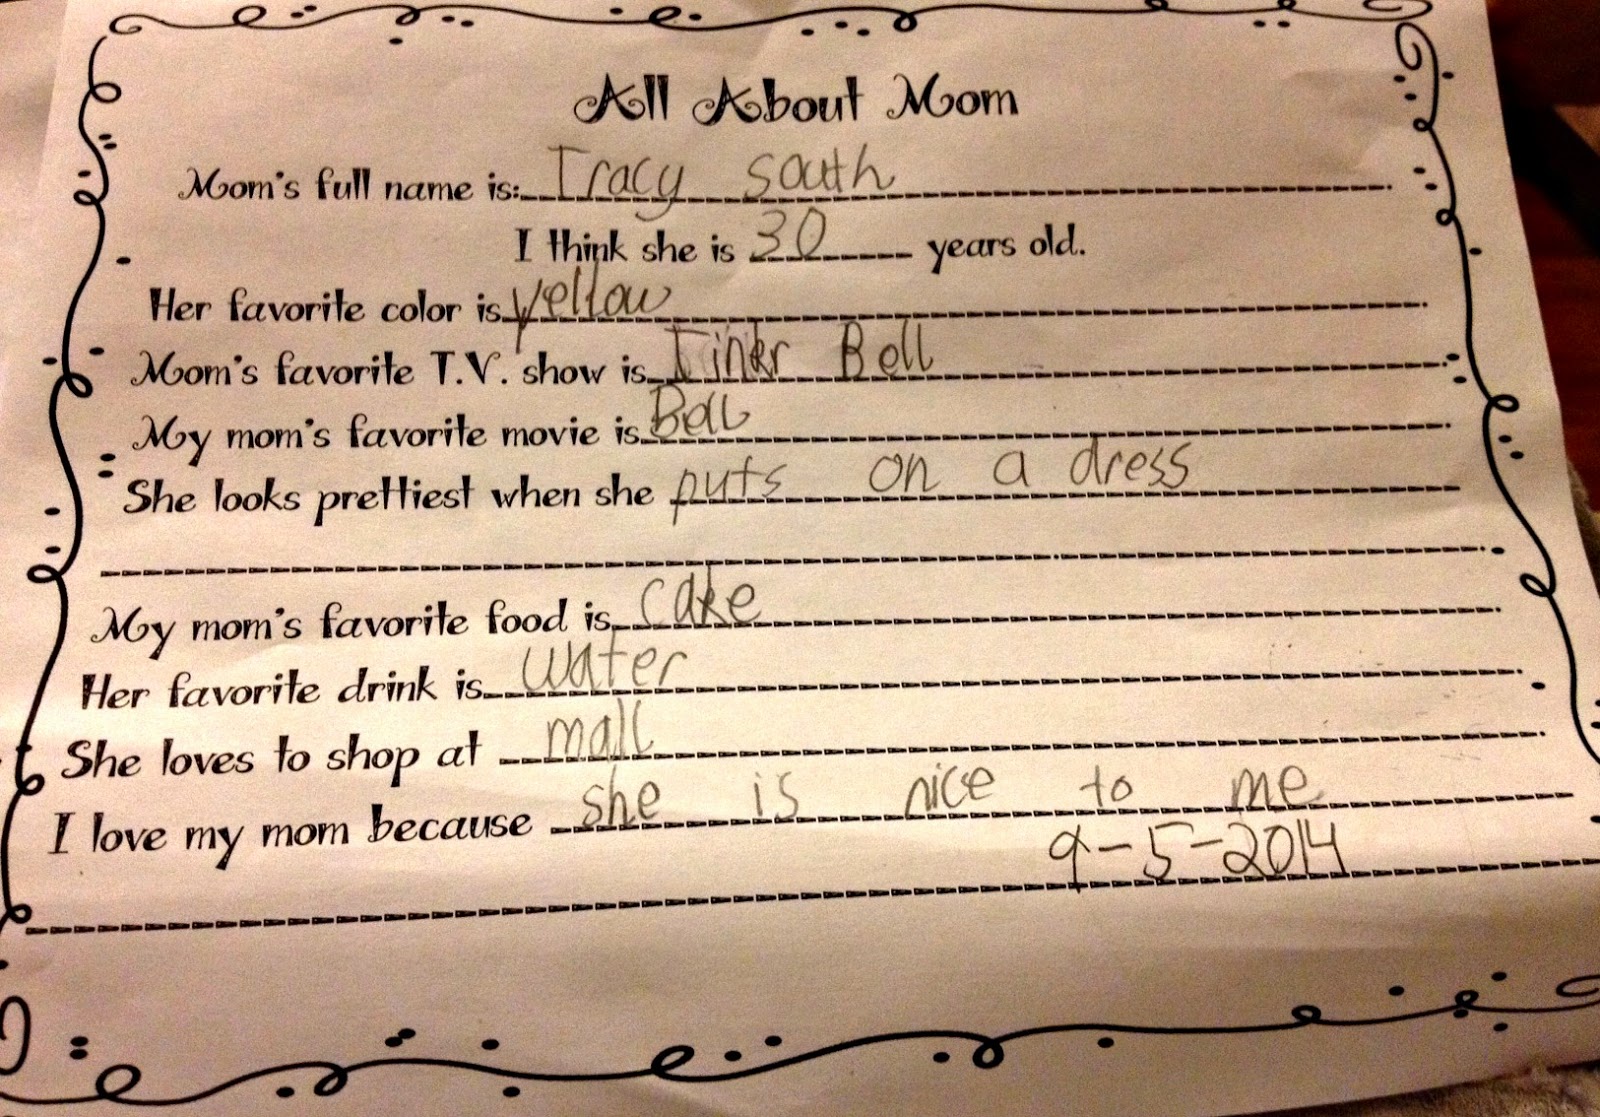 All About Mom
Mom's full name is: Tracy south
I think she is 30 years old.
Her favorite color is yellow
Mom's favorite T.V. show is Tinkr Bell
My mom's favorite movie is Bell
She looks prettiest when she puts on a dress
My mom's favorite food is cake
Her favorite drink is water
She loves to shop at mall
I love my mom because she is nice to me
9-5-2014